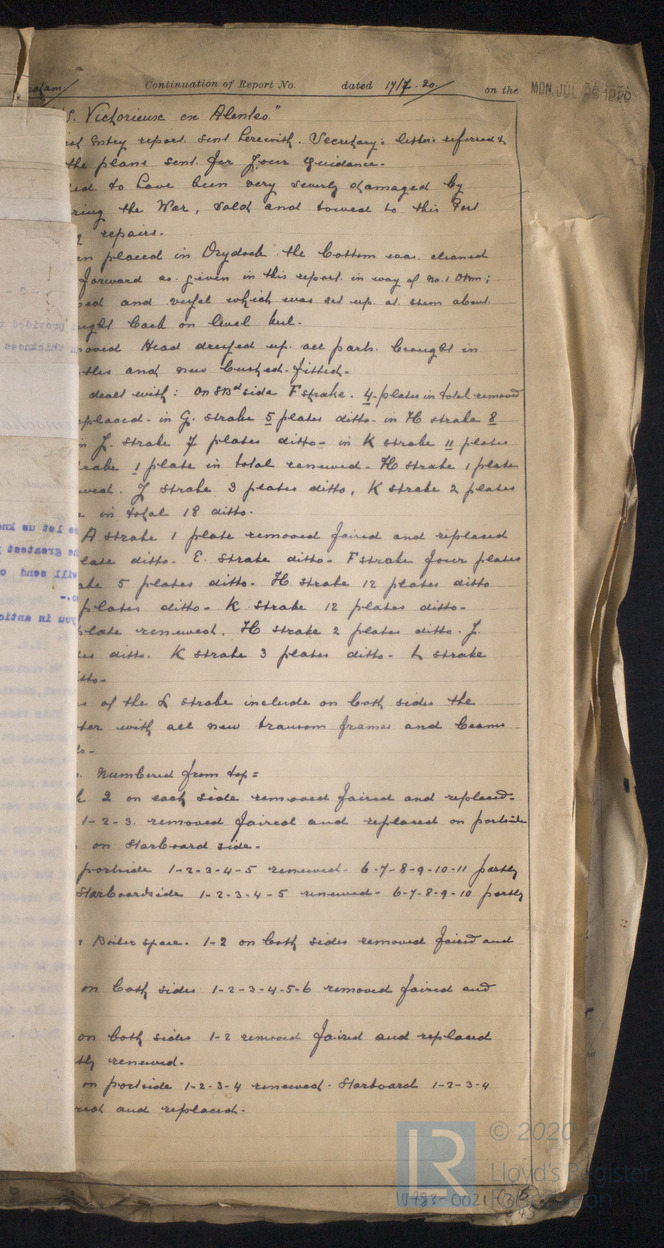 Continuation of Report No. dated 17/7-20 on the MON. JUL 26 1920
S. Victorieux ex Alenteo"
Entry report sent herewith. Secretary's letter referred to
the plans sent for your guidance.
to have been very severely damaged by
ring the War, sold and towed to this Port
repairs.
placed in Drydock the bottom was cleaned
forward as given in this report in way of no. 1 Dtm;
and vessel which was set up at stem about
ught back on level keel.
oved Head dressed up all parts brought in
and new bushed fitted.
dealt with: On SBd side F strake. 4 plates in total removed
placed. in G. strake 5 plates ditto. in H strake 8
J. strake 7 plates ditto - in K strake 11 plates
rake 1 plate in total renewed - H strake 1 plates
ewed. J strake 3 plates ditto, K strake 2 plates
in total 18 ditto.
A strake 1 plate removed faired and replaced
late ditto. E. strake ditto. F strake four plates
ake 5 plates ditto. H strake 12 plates ditto
plates ditto - K strake 12 plates ditto -
plate renewed, H strake 2 plates ditto. J.
ditto. K strake 3 plates ditto. L strake
itto.
of the L strake include on both sides the
ter with all new transom frames and beams
o -
numbered from top =
2 on each side removed faired and replaced.
1-2-3. removed faired and replaced on portside
on Starboard side.
portside 1-2-3-4-5 renewed - 6-7-8-9-10-11 partly
Starboardside 1-2-3-4-5 renewed - 6-7-8-9-10 partly
Boiler space. 1-2 on both sides removed faired and
on both sides 1-2-3-4-5-6 removed faired and
on both sides 1-2 removed faired and replaced
tly renewed.
on portside 1-2-3-4 renewed. Starboard 1-2-3-4
ired and replaced.
© 2020
Lloyd's Register
Foundation